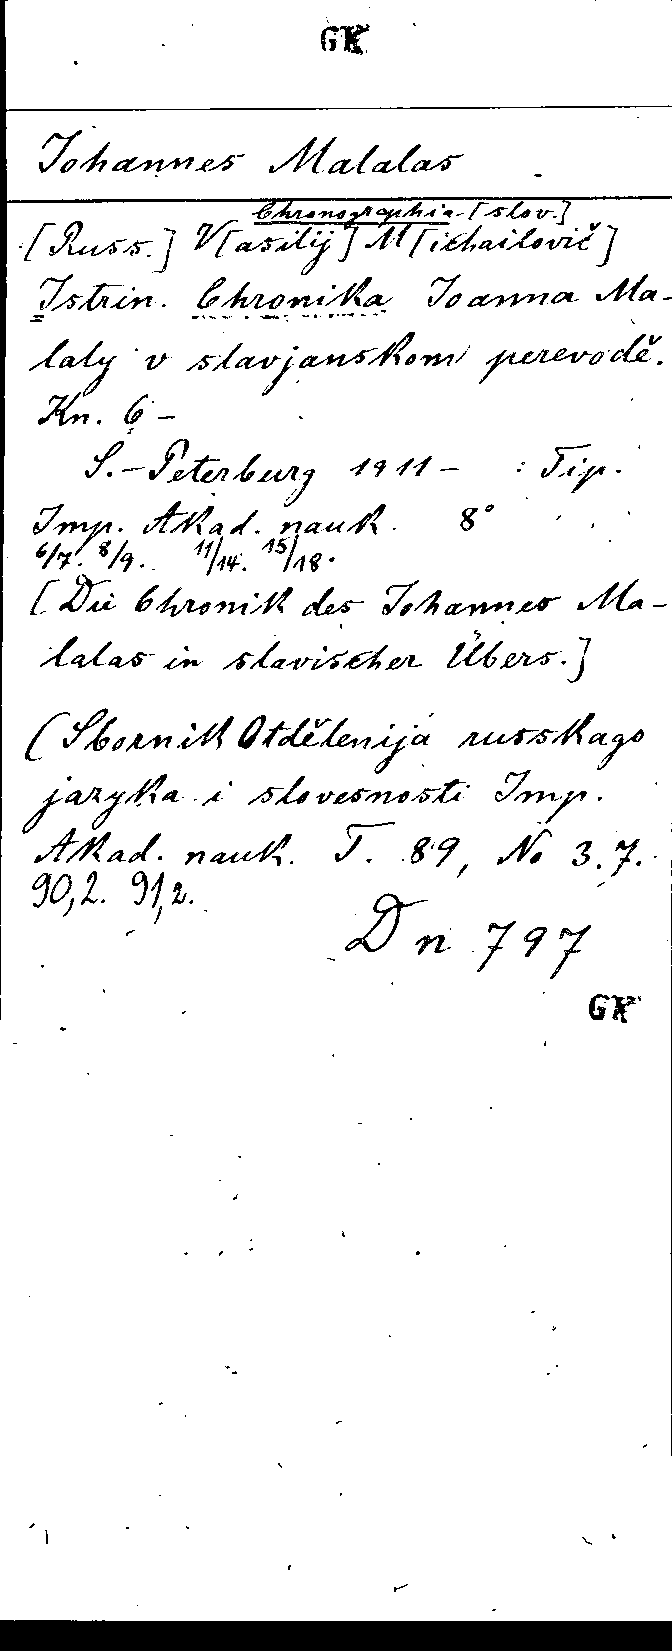 GK
Johannes Malalas
Chronographia [slov.]
[Russ.] V[asilij] M[ichailovič]
Istrin. Chronika Ioanna Ma-
laly v slavjanskom perevodě.
Kn. 6 -
S.-Peterburg 1911 - : Tip.
Imp. Akad. nauk. 8°
6/7. 8/9. 11/14. 15/18.
[Die Chronik des Johannes Ma-
lalas in slavischer Übers.]
(Sbornik Otdělenija russkago
jazyka i slovesnosti Imp.
Akad. nauk. T. 89, No 3.7.
90,2. 91,2.
Dn 797
GK